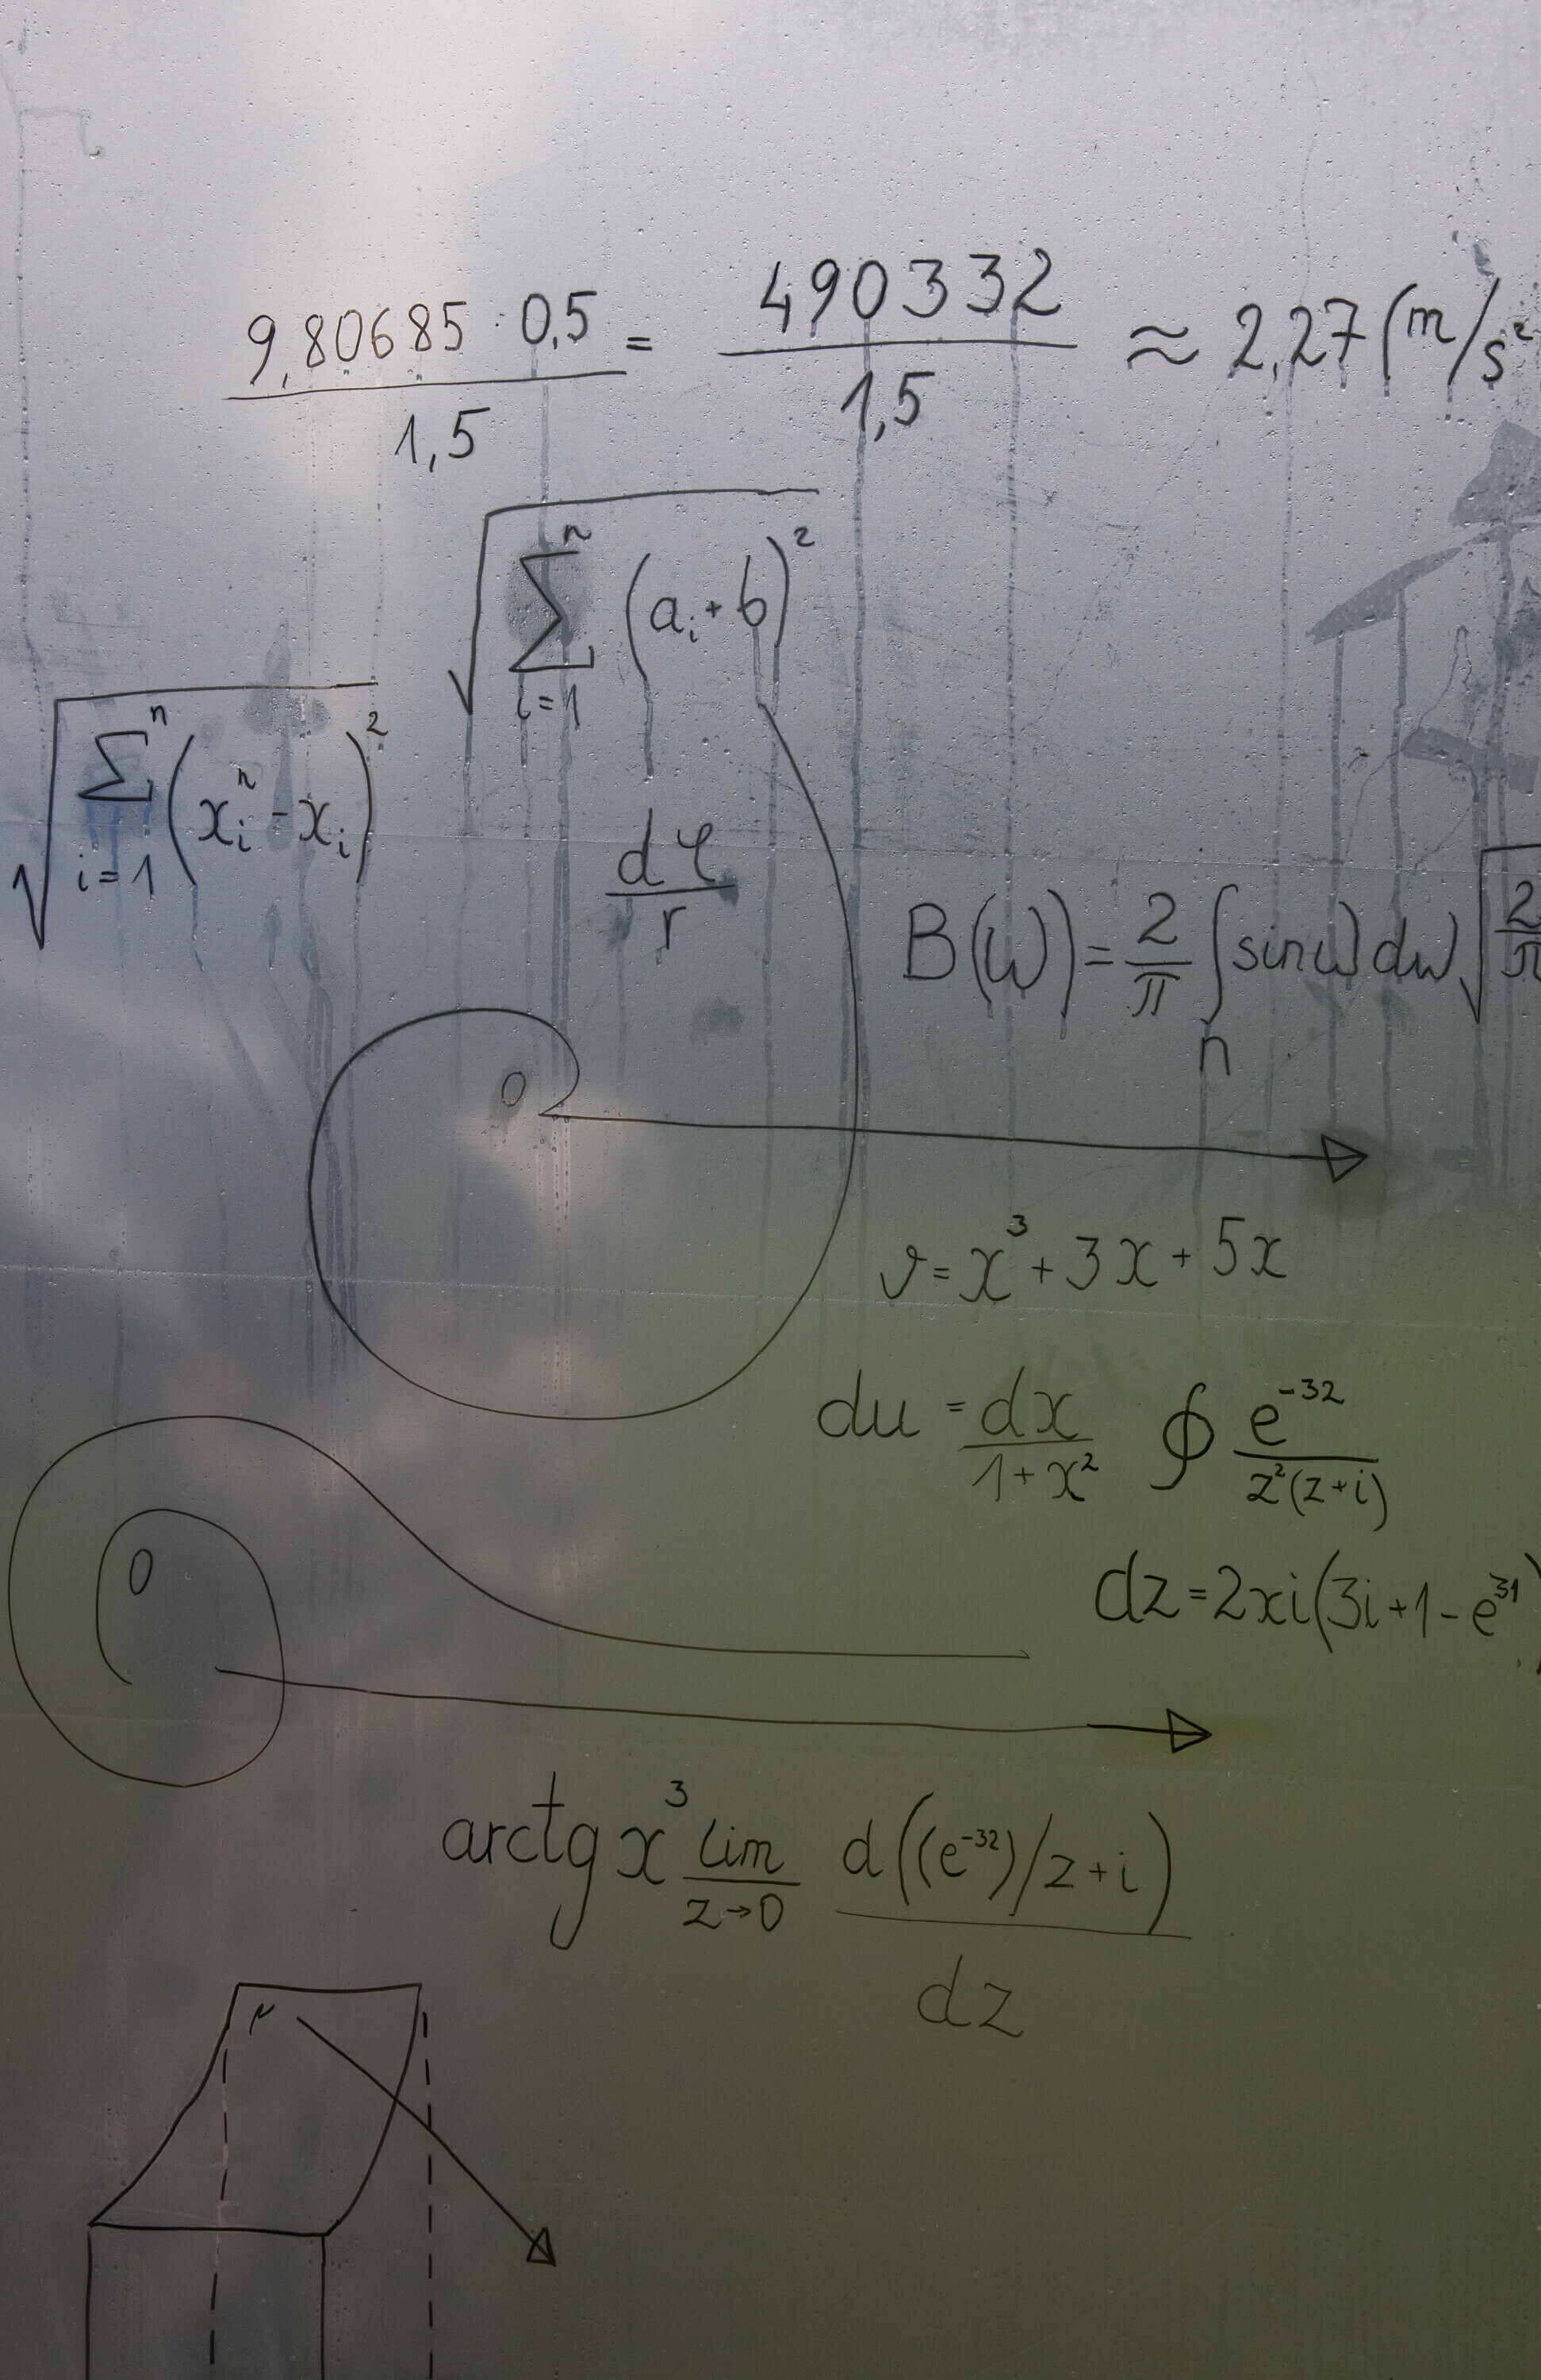 9,80685 · 0,5 / 1,5 = 490332 / 1,5 ≈ 2,27 (m/s²
√ Σ n i=1 (aᵢ + b)²
√ Σ n i=1 (xᵢⁿ - xᵢ)²
dφ / r
B(ω) = 2/π ∫ n sin ω dω √ 2/π
0
v = x³ + 3x + 5x
du = dx / 1+x² ∮ e⁻³² / z²(z+i)
0
dz = 2xi(3i+1-e³¹)
arctg x³ lim z→0 d((e⁻³²)/z+i) / dz